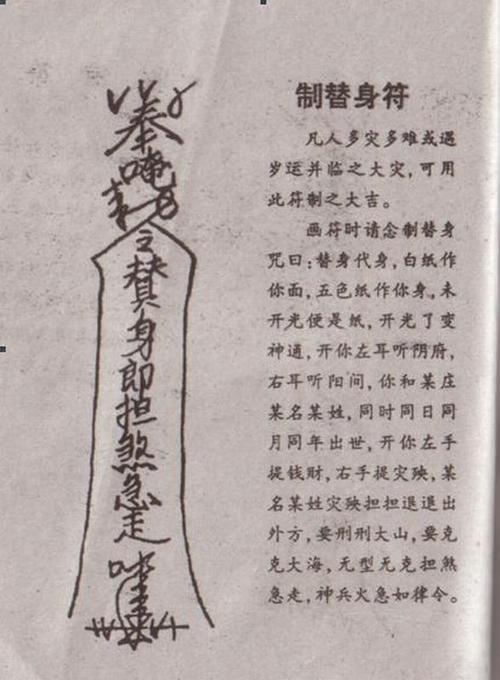 制替身符
凡人多灾多难或遇
岁运并临之大灾,可用
此符制之大吉。
画符时请念制替身
咒曰:替身代身,白纸作
你面,五色纸作你身,未
开光便是纸,开光了变
神通,开你左耳听阴府,
右耳听阳间,你和某庄
某名某姓,同时同日同
月同年出世,开你左手
提钱财,右手提灾殃,某
名某姓灾殃担担退退出
外方,要刑刑大山,要克
克大海,无型无克担煞
急走,神兵火急如律令。
奉
唵
令
替身即担煞急走